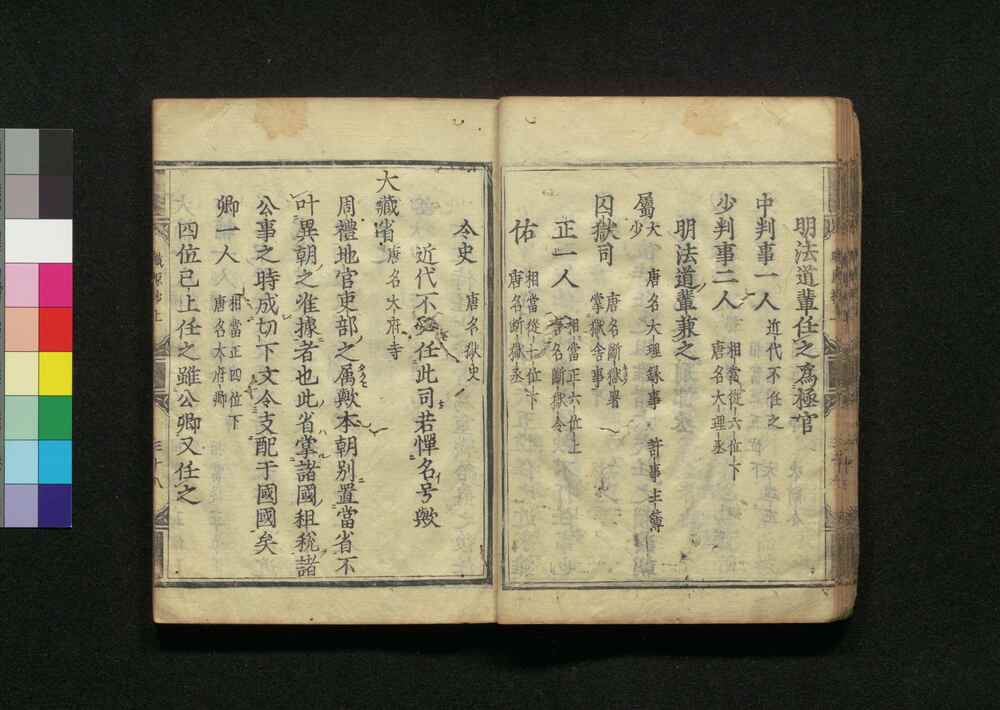 明法道輩任之爲極官
中判事一人 近代不任之
少判事二人 相當從六位下
唐名大理丞
明法道輩兼之
屬 大
少 唐名大理録事 評事主簿
囚獄司 唐名斷獄署
掌獄舎事
正一人 相當正六位上
唐名斷獄令
佑 相當從七位下
唐名斷獄丞
令史 唐名獄史
近代不必任此司若憚名号歟
大藏省 唐名大府寺
周禮地官吏部之属歟本朝別置當省不
叶異朝之准據者也此省掌諸國租税諸
公事之時成切下文令支配于國國矣
卿一人 相當正四位下
唐名大府卿
四位已上任之雖公卿又任之